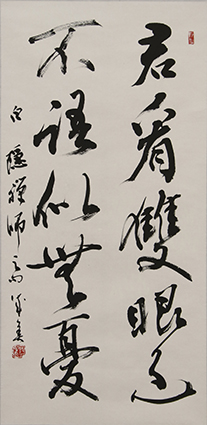 君看雙眼色
不語似無憂
白隱禪師